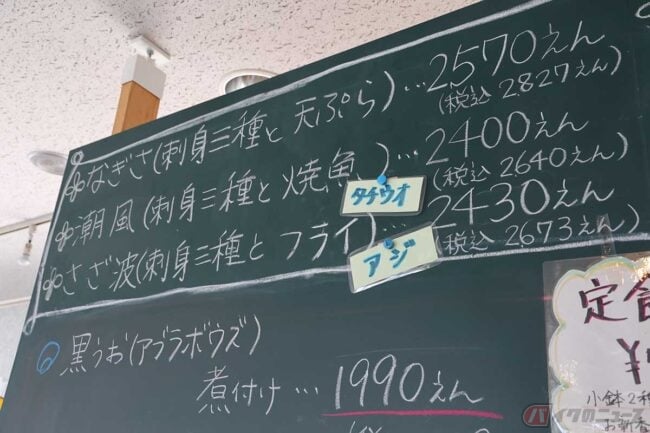 なぎさ(刺身三種と天ぷら)…2570えん
(税込 2827えん)
潮風(刺身三種と焼魚)…2400えん
(税込 2640えん)
タチウオ
さざ波(刺身三種とフライ)…2430えん
(税込 2673えん)
アジ
黒うお(アブラボウズ)
煮付け…1990えん
定食
¥
小鉢2種
お新香
バイクのニュース